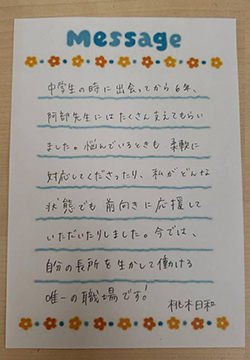 Message
中学生の時に出会ってから6年、
阿部先生にはたくさん支えてもらい
ました。悩んでいるときも柔軟に
対応してくださったり、私がどんな
状態でも前向きに応援して
いただいたりしました。今では、
自分の長所を生かして働ける
唯一の職場です!
桃木日和